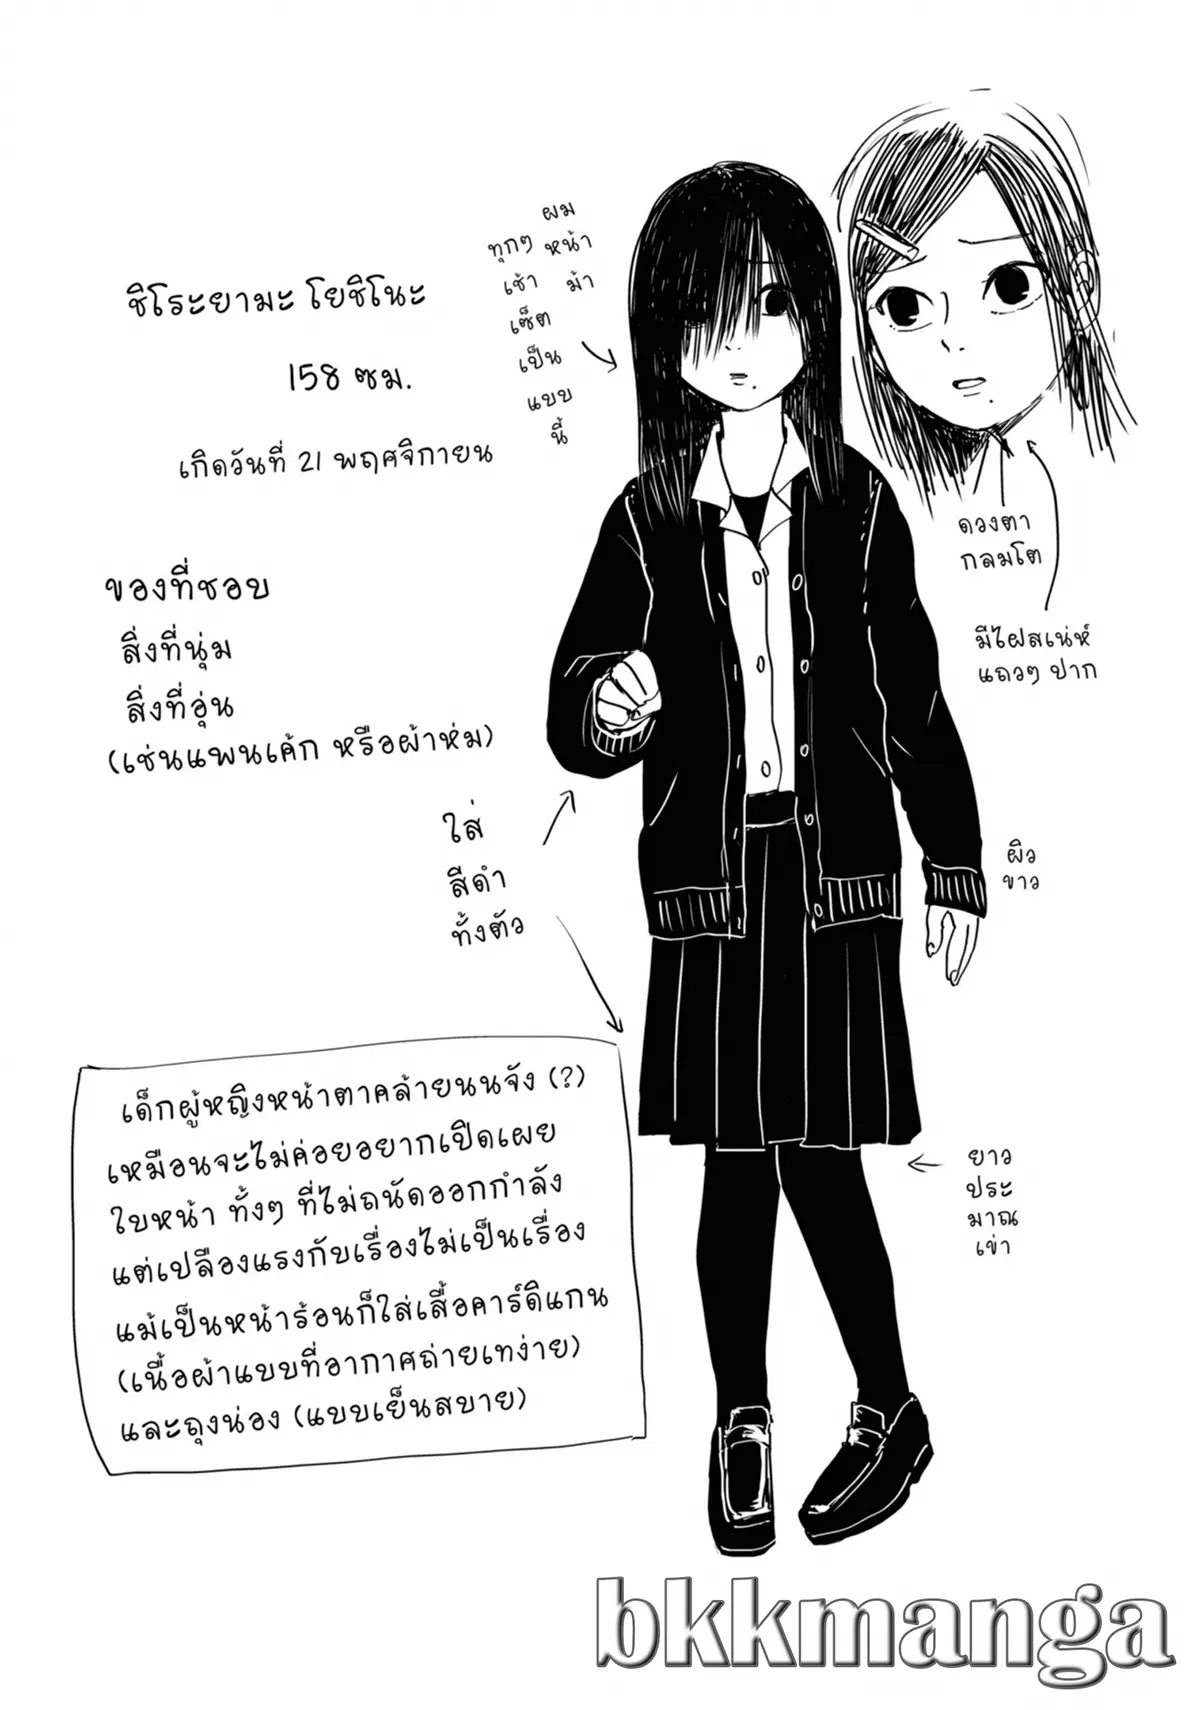 ชิโระยามะ โยชิโนะ
158 ซม.
เกิดวันที่ 21 พฤศจิกายน
ของที่ชอบ
สิ่งที่นุ่ม
สิ่งที่อุ่น
(เช่นแพนเค้ก หรือผ้าห่ม)
ผม
หน้า
ม้า
ทุกๆ
เช้า
เซ็ต
เป็น
แบบ
นี้
ดวงตา
กลมโต
มีไฝสเน่ห์
แถวๆ ปาก
ใส่
สีดำ
ทั้งตัว
ผิว
ขาว
เด็กผู้หญิงหน้าตาคล้ายนนจัง (?)
เหมือนจะไม่ค่อยอยากเปิดเผย
ใบหน้า ทั้งๆ ที่ไม่ถนัดออกกำลัง
แต่เปลืองแรงกับเรื่องไม่เป็นเรื่อง
แม้เป็นหน้าร้อนก็ใส่เสื้อคาร์ดิแกน
(เนื้อผ้าแบบที่อากาศถ่ายเทง่าย)
และถุงน่อง (แบบเย็นสบาย)
ยาว
ประ
มาณ
เข่า
bkkmanga